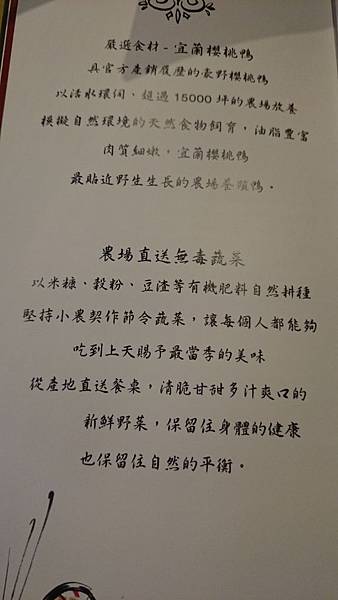 嚴選食材-宜蘭櫻桃鴨
具官方產銷履歷的豪野櫻桃鴨
以活水環伺、超過15000坪的農場放養
模擬自然環境的天然食物飼育，油脂豐富
肉質細嫩，宜蘭櫻桃鴨
最貼近野生生長的農場養殖鴨。
農場直送無毒蔬菜
以米糠、穀粉、豆渣等有機肥料自然耕種
堅持小農契作節令蔬菜，讓每個人都能夠
吃到上天賜予最當季的美味
從產地直送餐桌，清脆甘甜多汁爽口的
新鮮野菜，保留住身體的健康
也保留住自然的平衡。